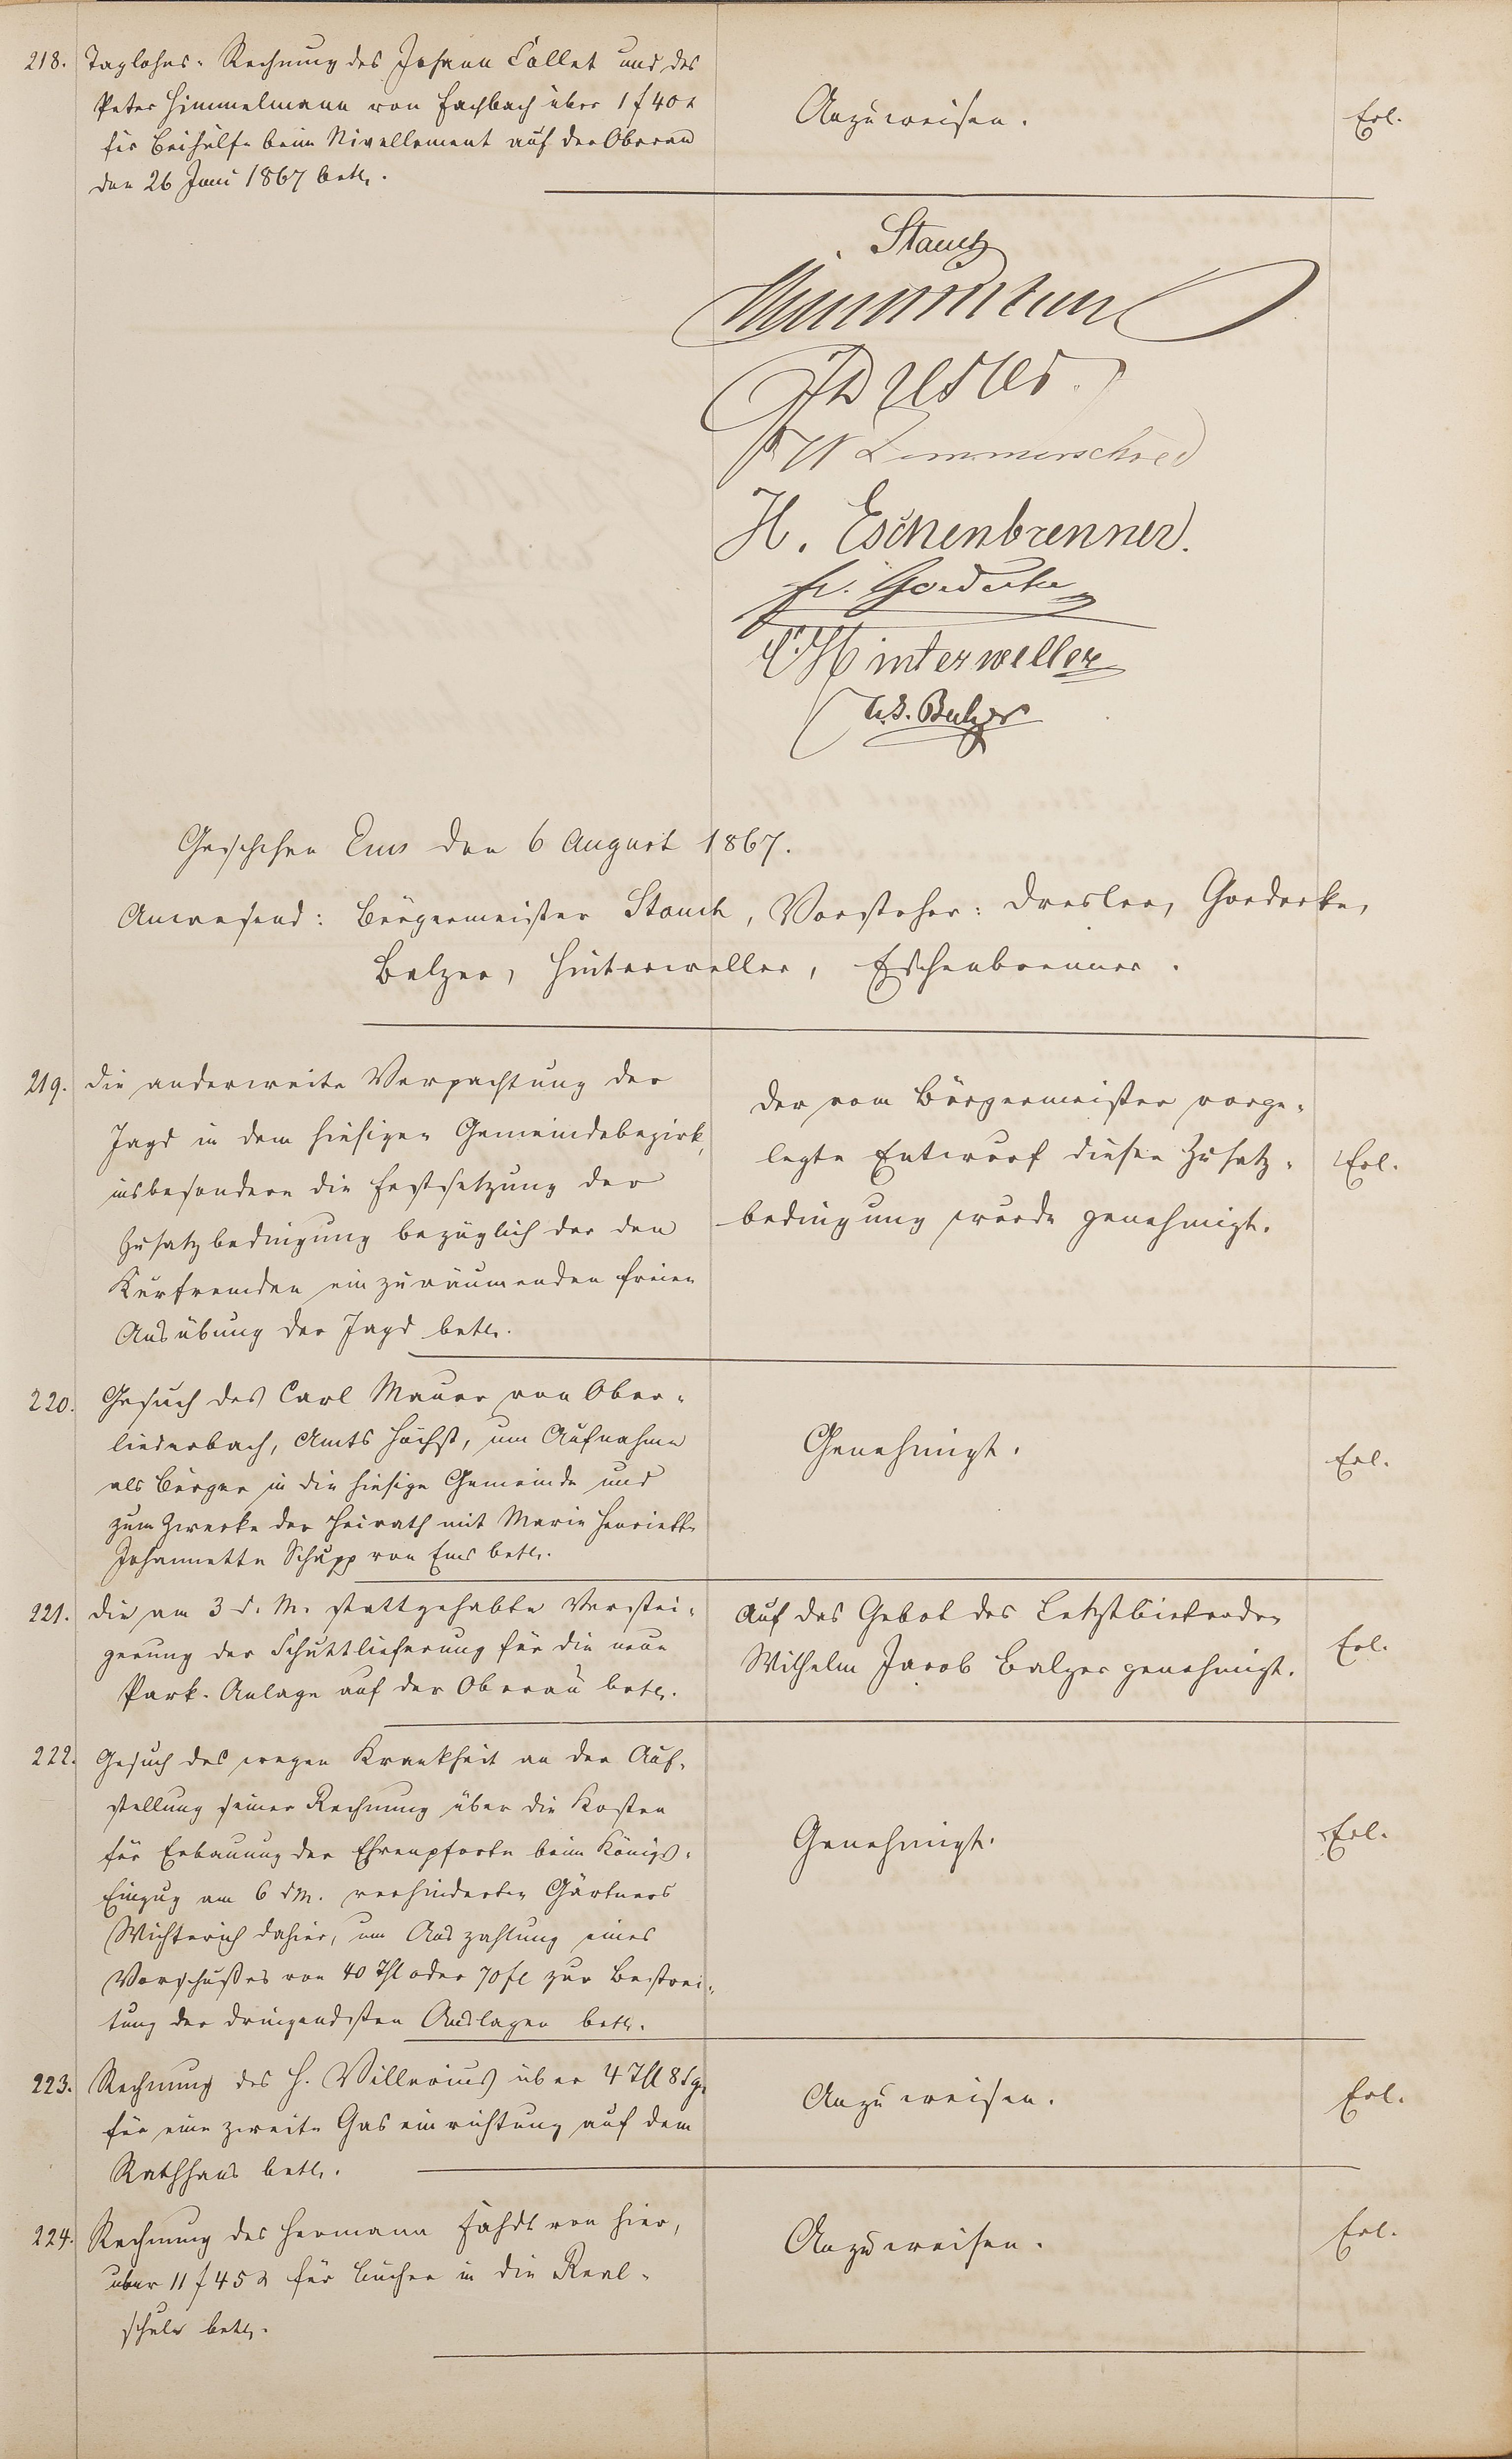 218. Taglohns-Rechnung des Johann Collet und des
Peter Himmelmann von Fachbach über 1 f 40 x
für Beihülfe beim Nivellement auf der Oberau
den 26 Juni 1867 betr.
Anzuweisen.
Erl.
Stauch
JDresler.
FW Zimmerschied
H. Eschenbrenner.
Fr. Goedecke
C. Hinterweller
W. J. Balzer
Geschehen Ems den 6 August 1867.
Anwesend: Bürgermeister Stauch, Vorsteher: Dresler, Goedecke,
Balzer, Hinterweller, Eschenbrenner.
219. Die anderweite Verpachtung der
Jagd in dem hiesigen Gemeindebezirk,
insbesondere die Festsetzung der
Zusatzbedingung bezüglich der den
Kurfremden einzuräumenden freien
Ausübung der Jagd betr.
Der vom Bürgermeister vorge-
legte Entwurf dieser Zusatz-
bedingung wurde genehmigt.
Erl.
220. Gesuch des Carl Maurer von Ober-
liederbach, Amts Höchst, um Aufnahme
als Bürger in die hiesige Gemeinde und
zum Zwecke der Heirath mit Marie Henriette
Johannette Schupp von Ems betr.
Genehmigt.
Erl.
221. Die am 3 d. M. stattgehabte Verstei-
gerung der Schuttlieferung für die neue
Park-Anlage auf der Oberau betr.
Auf das Gebot des Letztbietenden
Wilhelm Jacob Balzer genehmigt.
Erl.
222. Gesuch des wegen Krankheit an der Auf-
stellung seiner Rechnung über die Kosten
für Erbauung der Ehrenpforte beim Königs-
Einzug am 6 d M. verhinderten Gärtners
Wichterich dahier, um Auszahlung eines
Vorschußes von 40 Thl oder 70 fl zur Bestrei-
tung der dringendsten Auslagen betr.
Genehmigt.
Erl.
223. Rechnung des H. Villerius über 4 Thl 8 Sgr
für eine zweite Gaseinrichtung auf dem
Rathhaus betr.
Anzuweisen.
Erl.
224. Rechnung des Hermann Fahdt von hier,
über 11 f 45 x für Bücher in die Real-
schule betr.
Anzuweisen.
Erl.